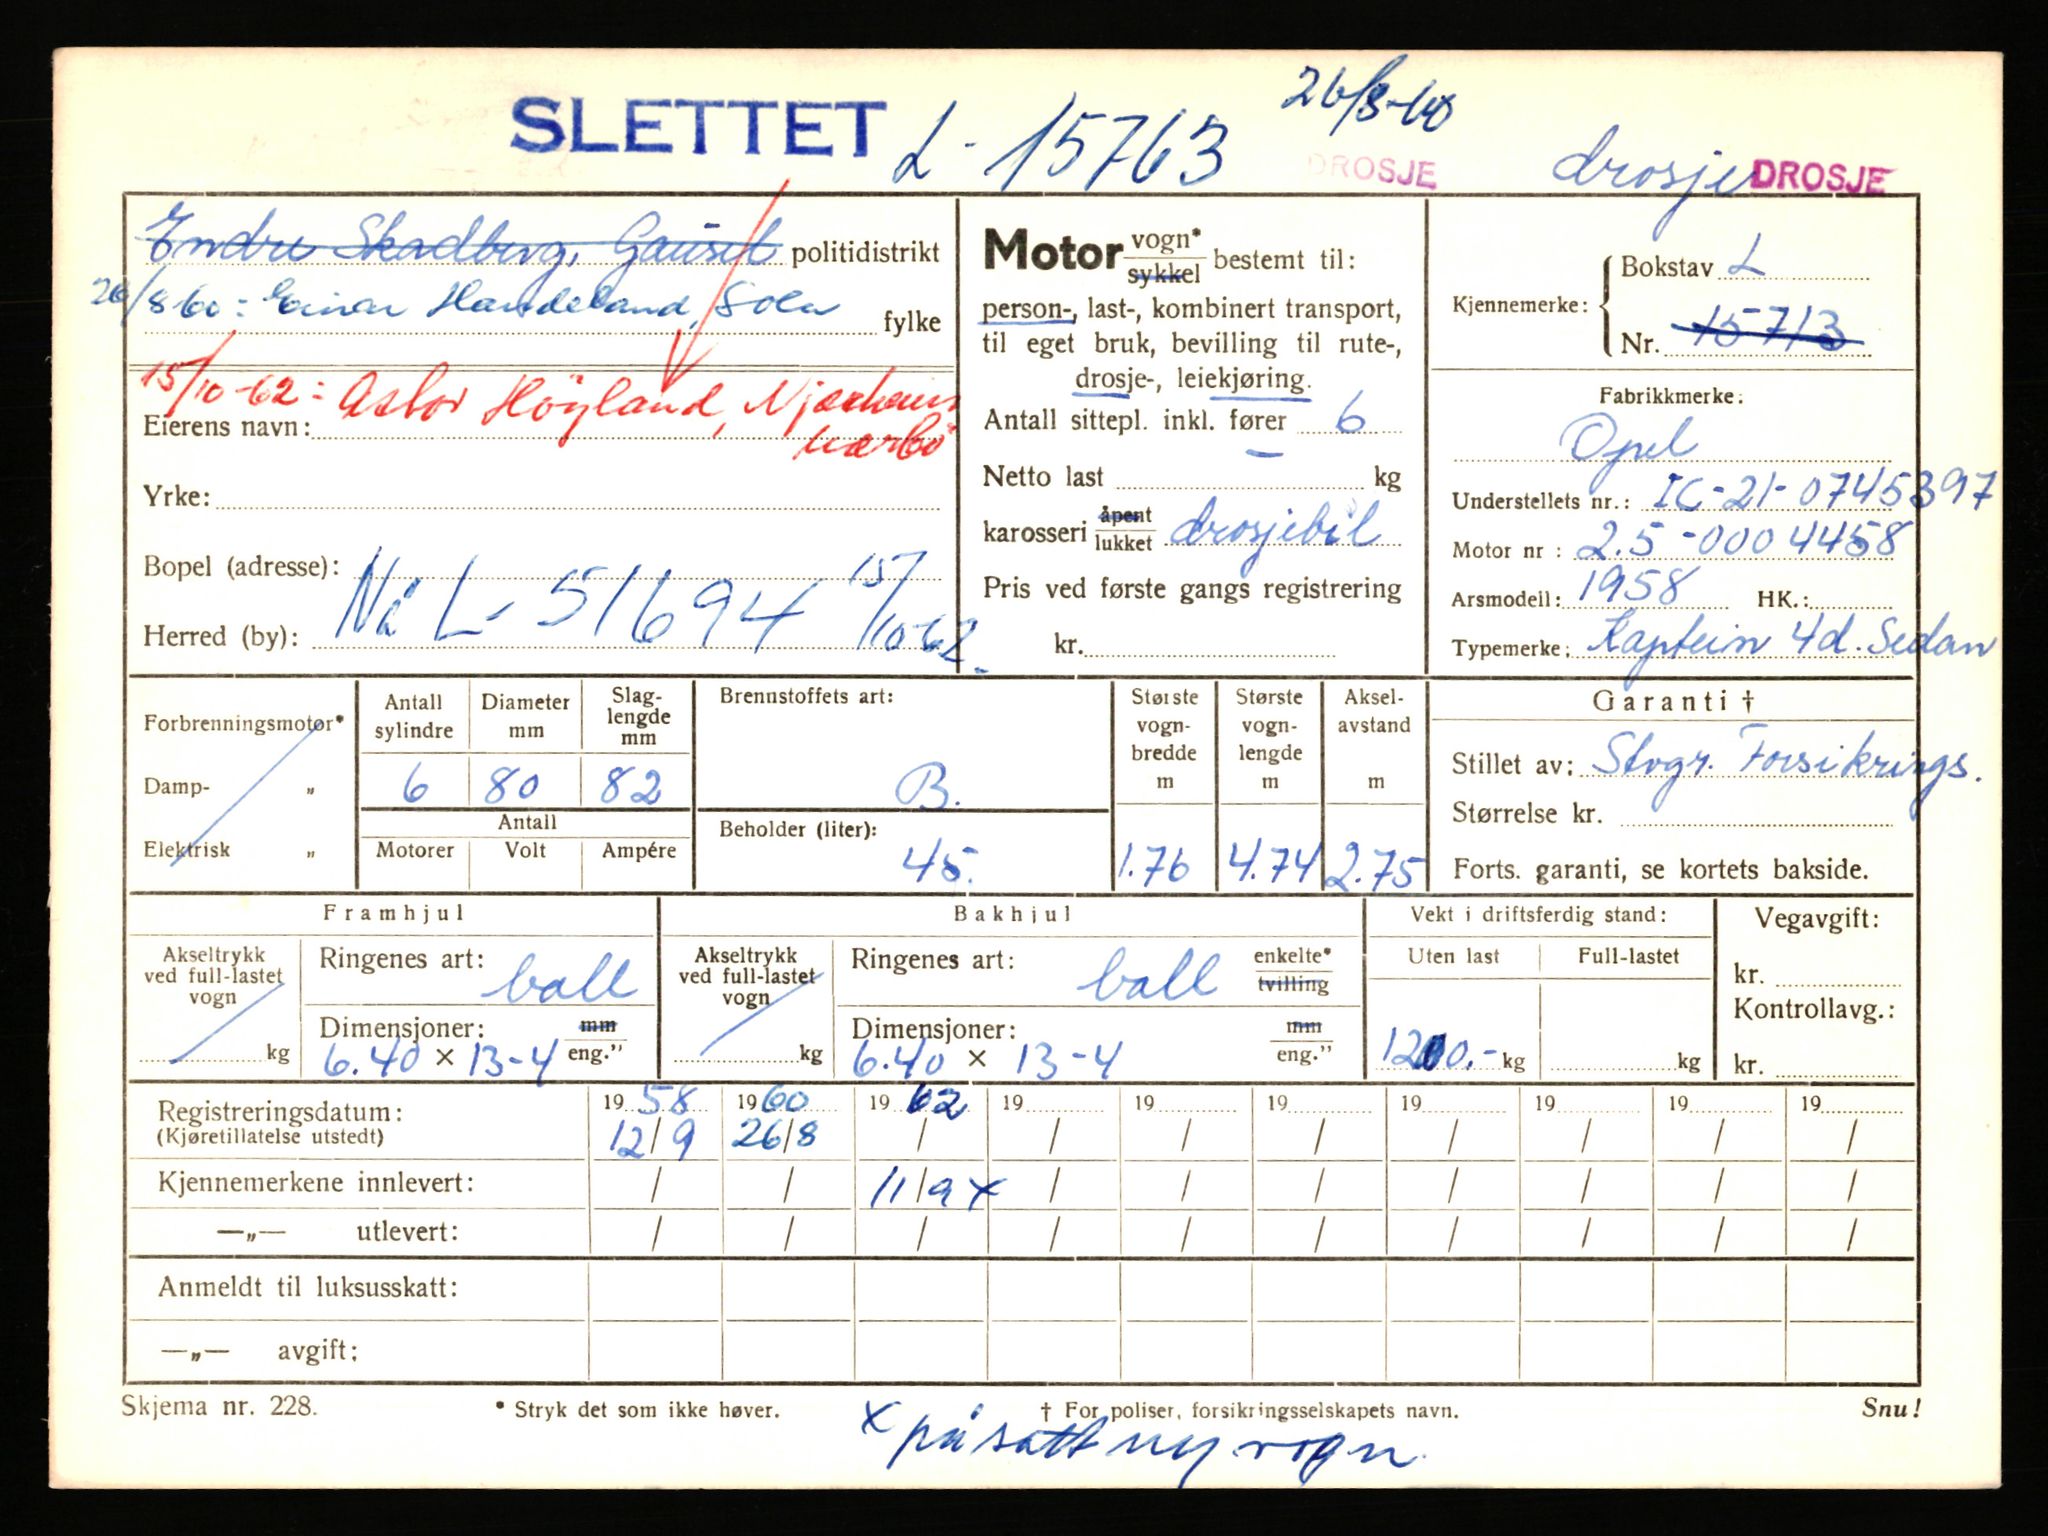 SLETTET L-15763 26/8-60 DROSJE drosje DROSJE
Endre Skadberg, Gausel politidistrikt
26/8 60: Einar Haudeland, Sola fylke
15/10-62: Astor Höyland, Njærheim
Nærbö
Eierens navn:
Yrke:
Bopel (adresse):
Herred (by): Nå L-51694 15/10-62.
Motor vogn* sykkel bestemt til:
person-, last-, kombinert transport,
til eget bruk, bevilling til rute-,
drosje-, leiekjøring.
Antall sittepl. inkl. fører 6
Netto last – kg
karosseri åpent lukket drosjebil
Pris ved første gangs registrering
kr.
Kjennemerke: Bokstav L
Nr. 15713
Fabrikkmerke:
Opel
Understellets nr.: IC-21-0745397
Motor nr: 2.5-0004458
Arsmodell: 1958 HK.:
Typemerke: Kaptein 4d. Sedan
Forbrenningsmotor*
Damp- „
Elektrisk „
Antall sylindre 6
Diameter mm 80
Slag-lengde mm 82
Antall
Motorer Volt Ampére
Brennstoffets art:
B.
Beholder (liter):
45.
Største vogn-bredde m 1.76
Største vogn-lengde m 4.74
Aksel-avstand m 2.75
Garanti †
Stillet av: Stvgr. Forsikrings.
Størrelse kr.
Forts. garanti, se kortets bakside.
Framhjul
Akseltrykk ved full-lastet vogn kg
Ringenes art: ball
Dimensjoner: mm
6.40 × 13-4 eng."
Bakhjul
Akseltrykk ved full-lastet vogn kg
Ringenes art: ball enkelte* tvilling
Dimensjoner: mm
6.40 × 13-4 eng."
Vekt i driftsferdig stand:
Uten last Full-lastet
1200.- kg kg
Vegavgift:
kr.
Kontrollavg.:
kr.
Registreringsdatum: 1958 1960 1962 19 19 19 19 19 19 19
(Kjøretillatelse utstedt) 12/9 26/8 / / / / / / / /
Kjennemerkene innlevert: / / 11/9 x / / / / / / /
—„— utlevert: / / / / / / / / / /
Anmeldt til luksusskatt:
—„— avgift:
Skjema nr. 228. * Stryk det som ikke høver. † For poliser, forsikringsselskapets navn. Snu!
x påsatt ny vogn